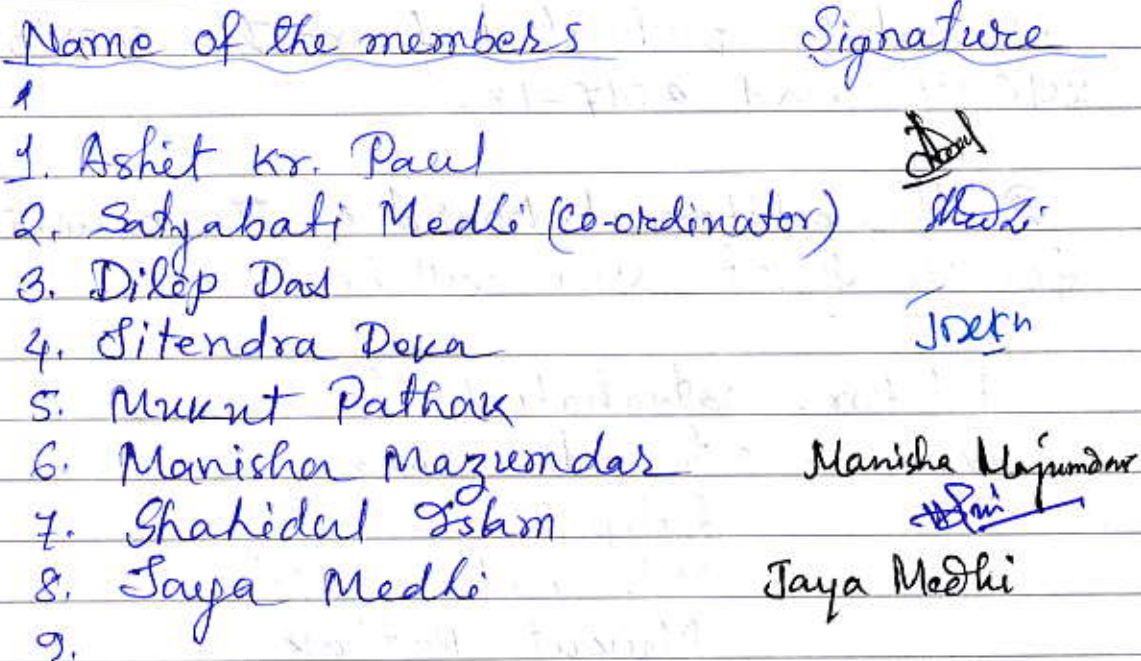 Name of the members Signature
1
1. Ashit Kr. Paul
2. Satyabati Medhi (Co-ordinator) SMedhi
3. Dilip Das
4. Jitendra Deka JDeka
5. Mukut Pathak
6. Manisha Mazumdar Manisha Majumdar
7. Shahidul Islam
8. Jaya Medhi Jaya Medhi
9.